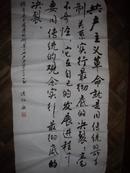 共产主义革命就是同传统的所有
制关系实行最彻底的决裂；毫不
奇怪，它在自己的发展进程中
要同传统的观念实行最彻底的
决裂。